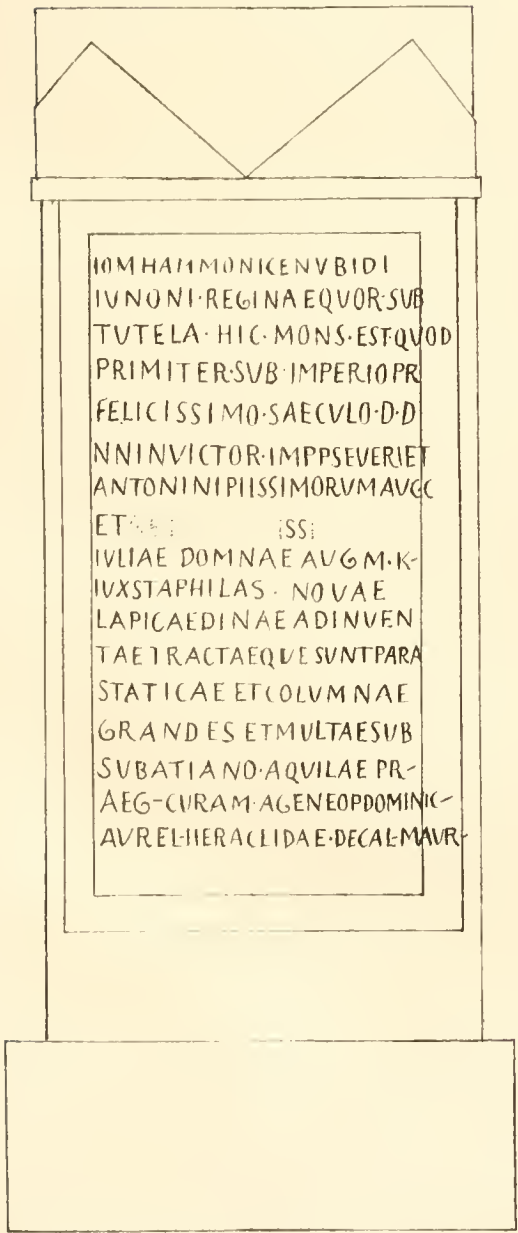 IOM HAMMONI CENVBIDI
IVNONI·REGINAE QVOR·SVB
TVTELA·HIC·MONS·EST·QVOD
PRIMITER·SVB·IMPERIO PR
FELICISSIMO·SAECVLO·D·D
NN INVICTOR·IMPP SEVERI ET
ANTONINI PIISSIMORVM AVGG
ET ISSI
IVLIAE DOMNAE AVG M·K-
IVXSTA PHILAS·NOVAE
LAPICAEDINAE ADINVEN
TAE TRACTAEQVE SVNT PARA
STATICAE ET COLVMNAE
GRANDES ET MVLTAE SVB
SVBATIANO·AQVILAE PR-
AEG-CVRAM·AGENE OP DOMINIC-
AVREL·HERACLIDAE·DEC AL·MAVR-